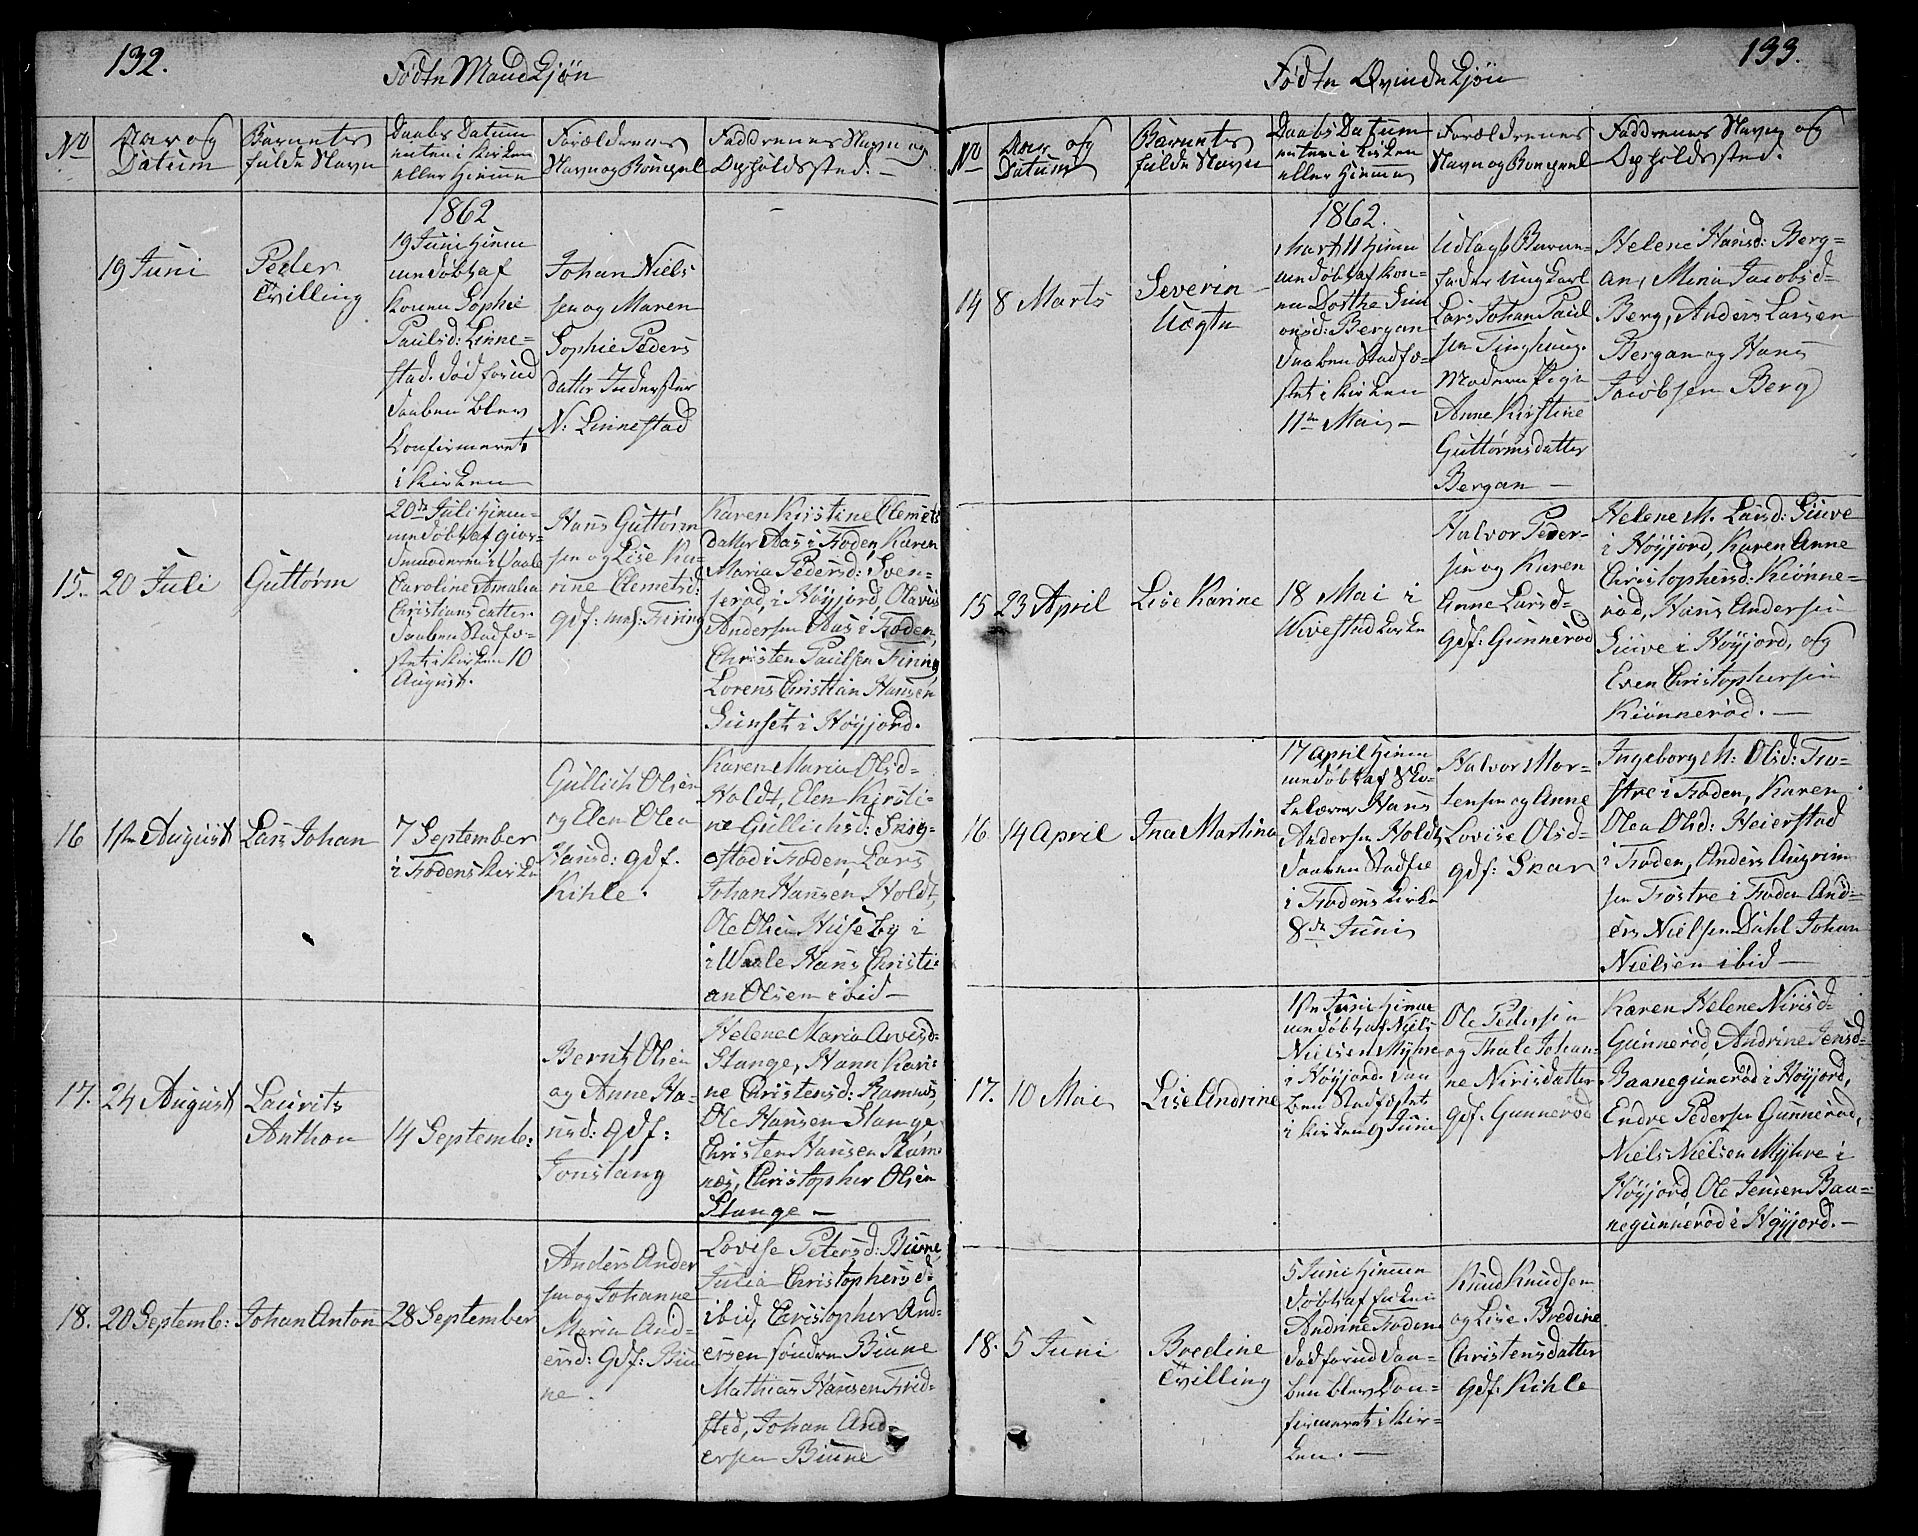 132.
Födte Mandkjön
No
Aar og
Datum
Barnets
fulde Navn
Daabs Datum
enten i Kirken
eller Hiemme
Forældrenes
Navn og Bopæl
Faddrenes Navn og
Opholdssted. –
19 Juni
Peder
Tvilling
1862
19 Juni Hiem
mendöbt af
Konen Sophie
Paulsd: Linne=
stad. död forind
Daaben blev
Confirmeret
i Kirken
Johan Niels
sen og Maren
Sophie Peders
datter Inderster
N: Linnestad
15.
20 Juli
Guttorm
20de Juli Hiem=
mendöbt af Gior=
demoderen i Vaale
Caroline Amalia
Christiansdatter.
Daaben Stadfæ=
stet i Kirken 10
August.
Hans Guttorm
sen og Lise Ka=
rine Clemetsd:
gdf:
Karen Kirstine Clemets
datter Aas i Froden, Karen
Maria Pedersd: Sven=
seröd, i Höyjord, Olavus
Andersen Aas i Froden,
Christen Paulsen
Lorens Christian Hansen
i Höyjord.
16
1ste August
Lars Johan
7 September
i Frodens Kirke
Gullich Olsen
og Elen Olea
Hansd: gdf.
Kihle.
Karen Maria Olsd=
Holdt, Elen Kirsti=
ne Gullichsd:
stad i Froden, Lars
Johan Hansen Holdt,
Ole Olsen Huseby i
i Waale Hans Christi=
an Olsen ibid –
17.
24 August
Laurits
Anthon
14 Septemb:
Bernt Olsen
og Anne Ha=
nsd: gdf:
Jonstang
Helene Maria Arvisd=
Stange, Hann Kari=
ne Christensd: Ramnæs,
Ole Hansen Stange
Christen Hansen Ram
næs, Christopher Olsen
Stange –
18.
20 Septemb:
Johan Anton
28 September
Anders Ander
sen og Johanne
Maria And=
ersd: gdf: Biu
ne.
Lovise Petersd: Biune
Julia Christophersd=
ibid, Christopher And=
ersen söndre Biune
Mathias Hansen
sted, Johan And=
ersen Biune
133.
Födte Qvindekjön
No
Aar og
Datum
Barnets
fulde Navn
Daabs Datum
enten i Kirken
eller Hiemme
Forældrenes
Navn og Bopæl
Faddrenes Navn og
Opholdssted.
14
8 Marts
Severin
Uægte
1862.
Marts 11 Hiem
mendöbt af Kon=
en Dorthe Sim
onsd: Bergan
Daaben Stadfæ=
stet i Kirken
11te Mai –
Udlagt Barne=
fader Ungkarl
Lars Johan Paul
sen Tinghaug.
Moderen Pige
Anne Kirstine
Guttormsdatter
Bergan –
Helene Hansd: Berg=
an, Mina Jacobsd=
Berg, Anders Larsen
Bergan og Hans
Jacobsen Berg
15
23 April
Lise Karine
18 Mai i
Wivestad Kirke
Halvor Peder=
sen og Karen
Anne Larsd=
gdf: Gunneröd
Helene M. Larsd: Giuve
i Höyjord, Karen Anne
Christophersd: Kiönne=
röd, Hans Andersen
Giuve i Höyjord, og
Even Christophersen
Kiönneröd. –
16
14 April
Ina Martina
17 April Hiem
mendöbt af Sko=
lelærer Hans
Andersen Holdt,
Daaben Stadfæ
i Frodens Kirke
8de Juni
Halvor Mor=
tensen og Anne
Lovise Olsd=
gdf: Skar
Ingeborg M: Olsd: Fro=
stre i Froden, Karen
Olea Olsd: Heierstad
i Froden, Anders Augrim
sen Frostre i Froden And=
ers Nielsen Dahl Johan
Nielsen ibid –
17.
10 Mai
Lise Andrine
1ste Juni Hiem
mendöbt af Niels
Nielsen Myhre
i Höyjord. Daa
ben Stadfæstet
i Kirken 9 Juni
Ole Pedersen
og Thale Johan=
ne Nirisdatter
gdf. Gunneröd
Karen Helene Nirisd=
Gunneröd, Andrine Jensd=
Baanegunneröd i Höyjord,
Endre Pedersen Gunneröd,
Niels Nielsen Myhre i
Höyjord, Ole Jensen Baa=
negunneröd i Höyjord. –
18.
5 Juni
Bredine
Tvilling
5 Juni Hiemmen
döbt af Pigen
Andrine Froden
Död forind Daa=
ben blev Con=
firmeret i Kir=
ken. –
Knud Knudsen
og Lise Bredine
Christensdatter
gdf: Kihle